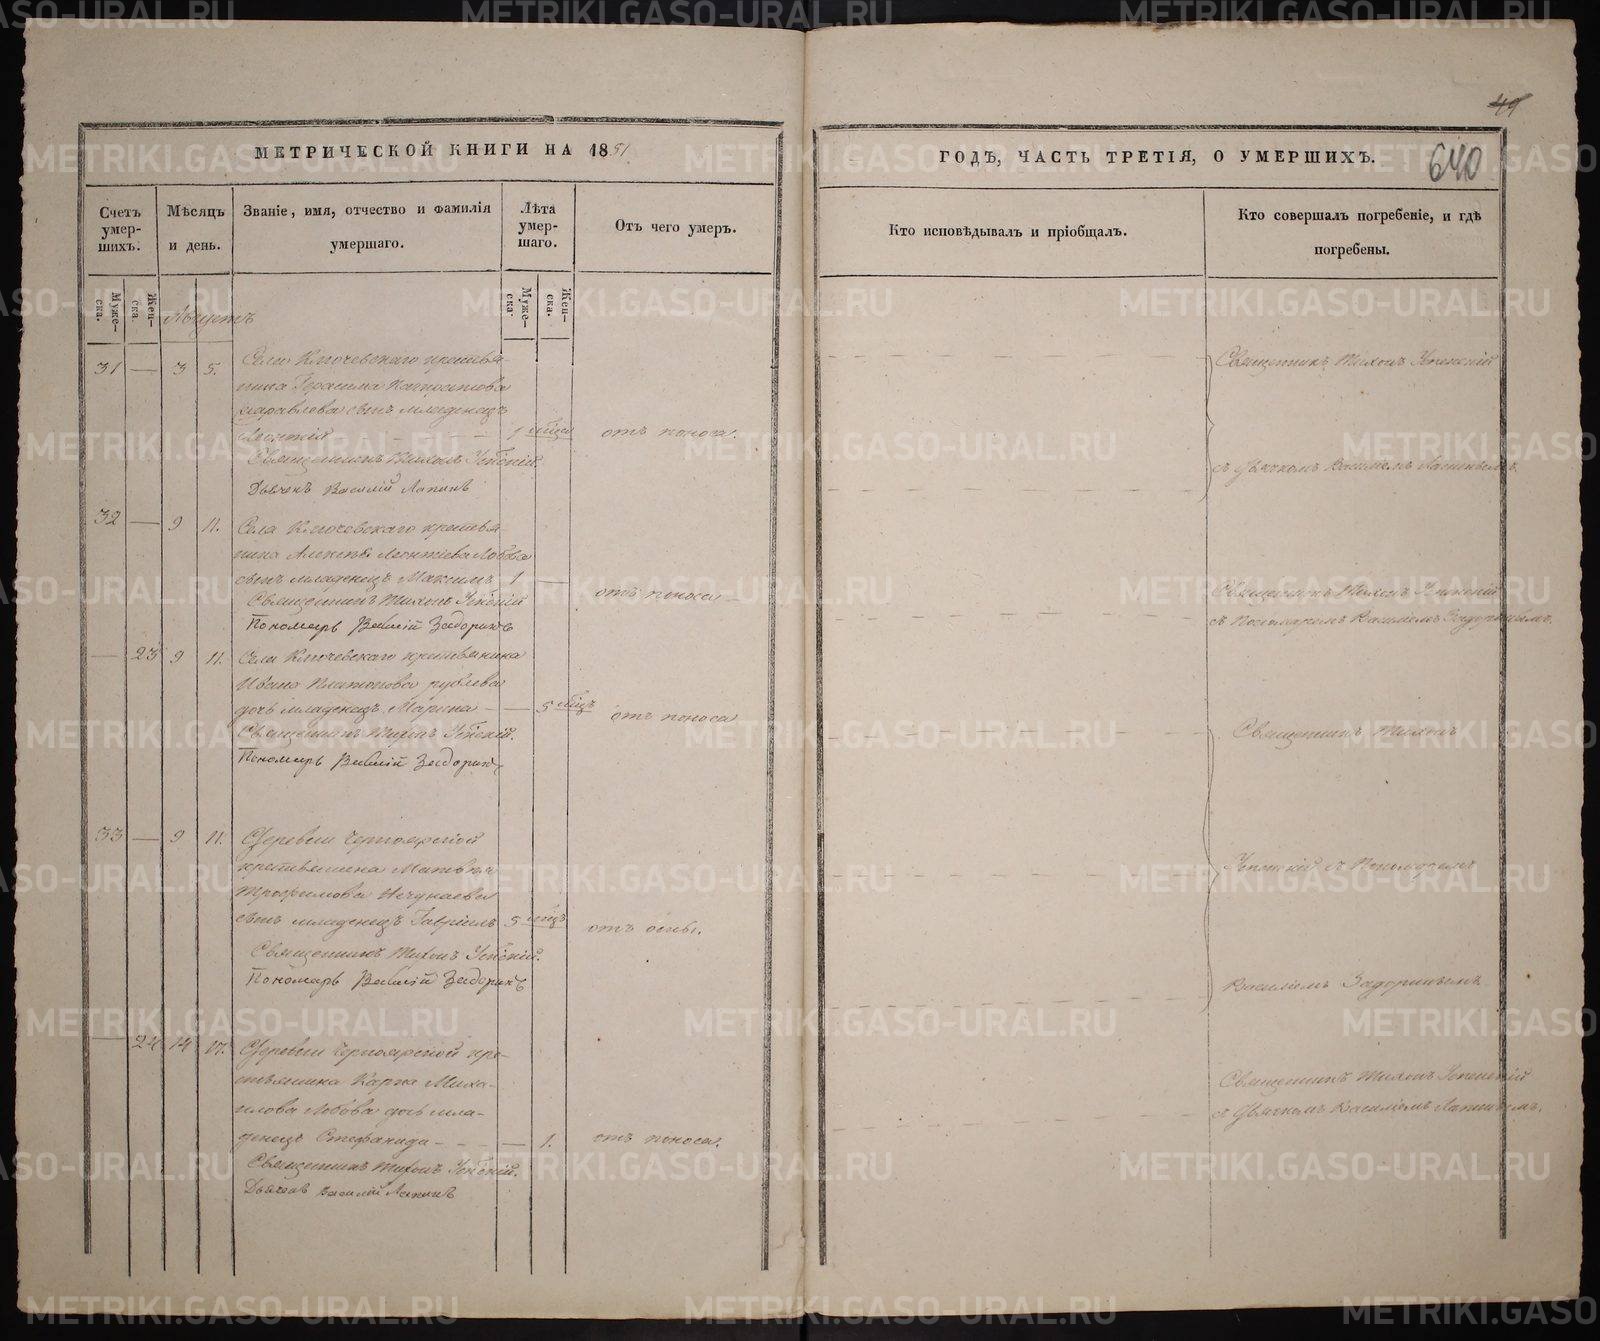 49
МЕТРИЧЕСКОЙ КНИГИ НА 1851
ГОДЪ, ЧАСТЬ ТРЕТІЯ, О УМЕРШИХЪ.
640
Счетъ умер-шихъ.
Мѣсяцъ и день.
Званіе, имя, отчество и фамилія умершаго.
Лѣта умер-шаго.
Отъ чего умеръ.
Кто исповѣдывалъ и пріобщалъ.
Кто совершалъ погребеніе, и гдѣ погребены.
Муже-ска.
Жен-ска.
Муже-ска.
Жен-ска.
Августъ
31 — 3 5.
Села Ключевскаго крестья-
нина Герасима
Журавлева сынъ младенецъ
Леонтій — 1 мѣсяц отъ поноса.
Священникъ Тихонъ Успенскій.
Дьячекъ Василій Лапинъ
Священникъ Тихонъ Успенскій
съ Дьячкомъ Василіемъ Лапинымъ.
32 — 9 11.
Села Ключевскаго крестья-
нина Алексѣя Леонтіева Лобова
сынъ младенецъ Максимъ 1 — отъ поноса
Священникъ Тихонъ Успенскій
Пономарь Василій Задоринъ
Священникъ Тихонъ Успенскій
съ Пономаремъ Василіемъ Задоринымъ.
— 23 9 11.
Села Ключевскаго крестьянина
Ивана Платонова Рублева
дочь младенецъ Марина — 5 мѣсц отъ поноса
Священникъ Тихонъ Успенскій.
Пономарь Василій Задоринъ
Священникъ Тихонъ
33 — 9 11.
Деревни Черноярской
крестьянина Матвѣя
Трофимова Нечунаева
сынъ младенецъ Гавріилъ 5 мѣсц отъ оспы.
Священникъ Тихонъ Успенскій.
Пономарь Василій Задоринъ
Успенскій съ Пономаремъ
Василіемъ Задоринымъ.
— 24 14 17.
Деревни Черноярской кре-
стьянина Карпа Миха-
илова Лобова дочь мла-
денецъ Стефанида — — 1. отъ поноса.
Священникъ Тихонъ Успенскій.
Дьячекъ Василій Лапинъ
Священникъ Тихонъ Успенскій
съ Дьячкомъ Василіемъ Лапинымъ.
METRIKI.GASO-URAL.RU